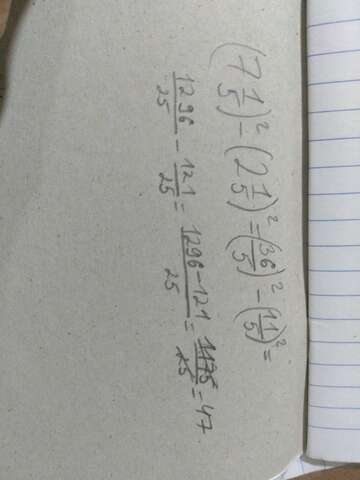 (7 1/5)² - (2 1/5)² = (36/5)² - (11/5)² =
1296/25 - 121/25 = 1296-121/25 = 1175/25 = 47